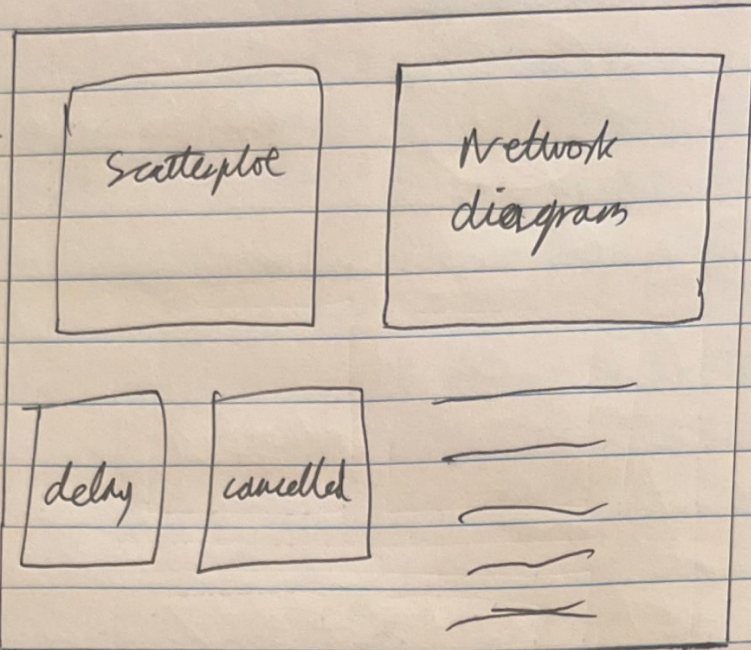 Scatterplot
Network
diagram
delay
cancelled